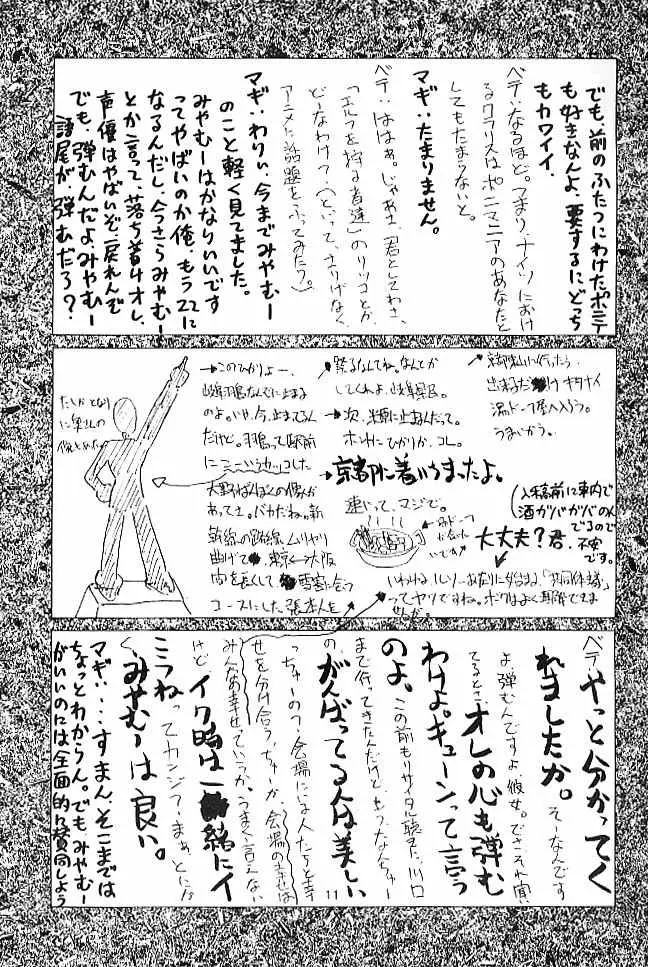 でも、前のふたつにわけたポニテ
も好きなんよ、要するにどっち
もカワイイ。
ベテ:なるほど。つまり、ナイツにおけ
るクラリスはポニマニアのあなたと
してもたまらないと。
マギ:たまりません。
ベテ:ははぁ。じゃあさ、君としてわさ、
「エルフを狩る者達」のリツコとか
どーなわけ?(といって、さりげなく
アニメに話題をふってみたり?)
マギ:わりぃ、今までみやむー
のこと軽く見てました。
みやむーはかなりいいです
ってやばいのか俺、もう22に
なるんだし、今さらみやむー
とか言って、落ち着けオレ、
声優はやばいぞ、戻れんぞ
でも、弾むんだよみやむー
語尾が弾むだろ?
たしかとなり
に奥さんの
像とかた
→このひかりよー、
岐阜羽島なんぞに止まる
のよ。いや、今、止まってるん
だけど。羽島って駅前
に
大野ばんぼくの像が
あってさ。バカだね。新
幹線の路線、ムリヤリ
曲げて東京⇔大阪
間を長くして雪害に会う
コースにした張本人を
祭るなんてね。なんとか
してくれよ、岐阜県民。
→次、米原に止まるんだって。
ホントにひかりか、コレ。
→京都に着いちまったよ。
速いって、マジで。
京都駅に行ったら
出来るだけキタナイ
湯ドーフ屋へ入ろう。
うまいから。
(入稿前に車内で
酒ガバガバのん
でるので
不安
です。
大丈夫?君、
いわゆるルソーあたりに始まる、「共同体主義」
ってヤツですね。ボクはよく理解できま
せんが。
ベテ:やっと分かってく
れましたか。そーなんです
よ、弾むんですよ、彼女。でさそれ聞い
てるとさ、オレの心も弾む
わけよ。キューンって言う
のよ、この前もリサイタル聴きに川口
まで行ってきたんだけど、もうなんちゅー
の、がんばってる人は美しい
っちゅーの?会場にいる人たちと幸
せを分け合う、ちゅーか、会場の幸せは
みんなの幸せっていうか、うまく言えない
けど、イク時は一緒にイ
こうねってカンジ?まあ、とにか
く、みやむーは良い。
マギ:・・・すまん、そこまでは
ちょっとわからん。でもみやむー
がいいのには全面的に賛同しよう